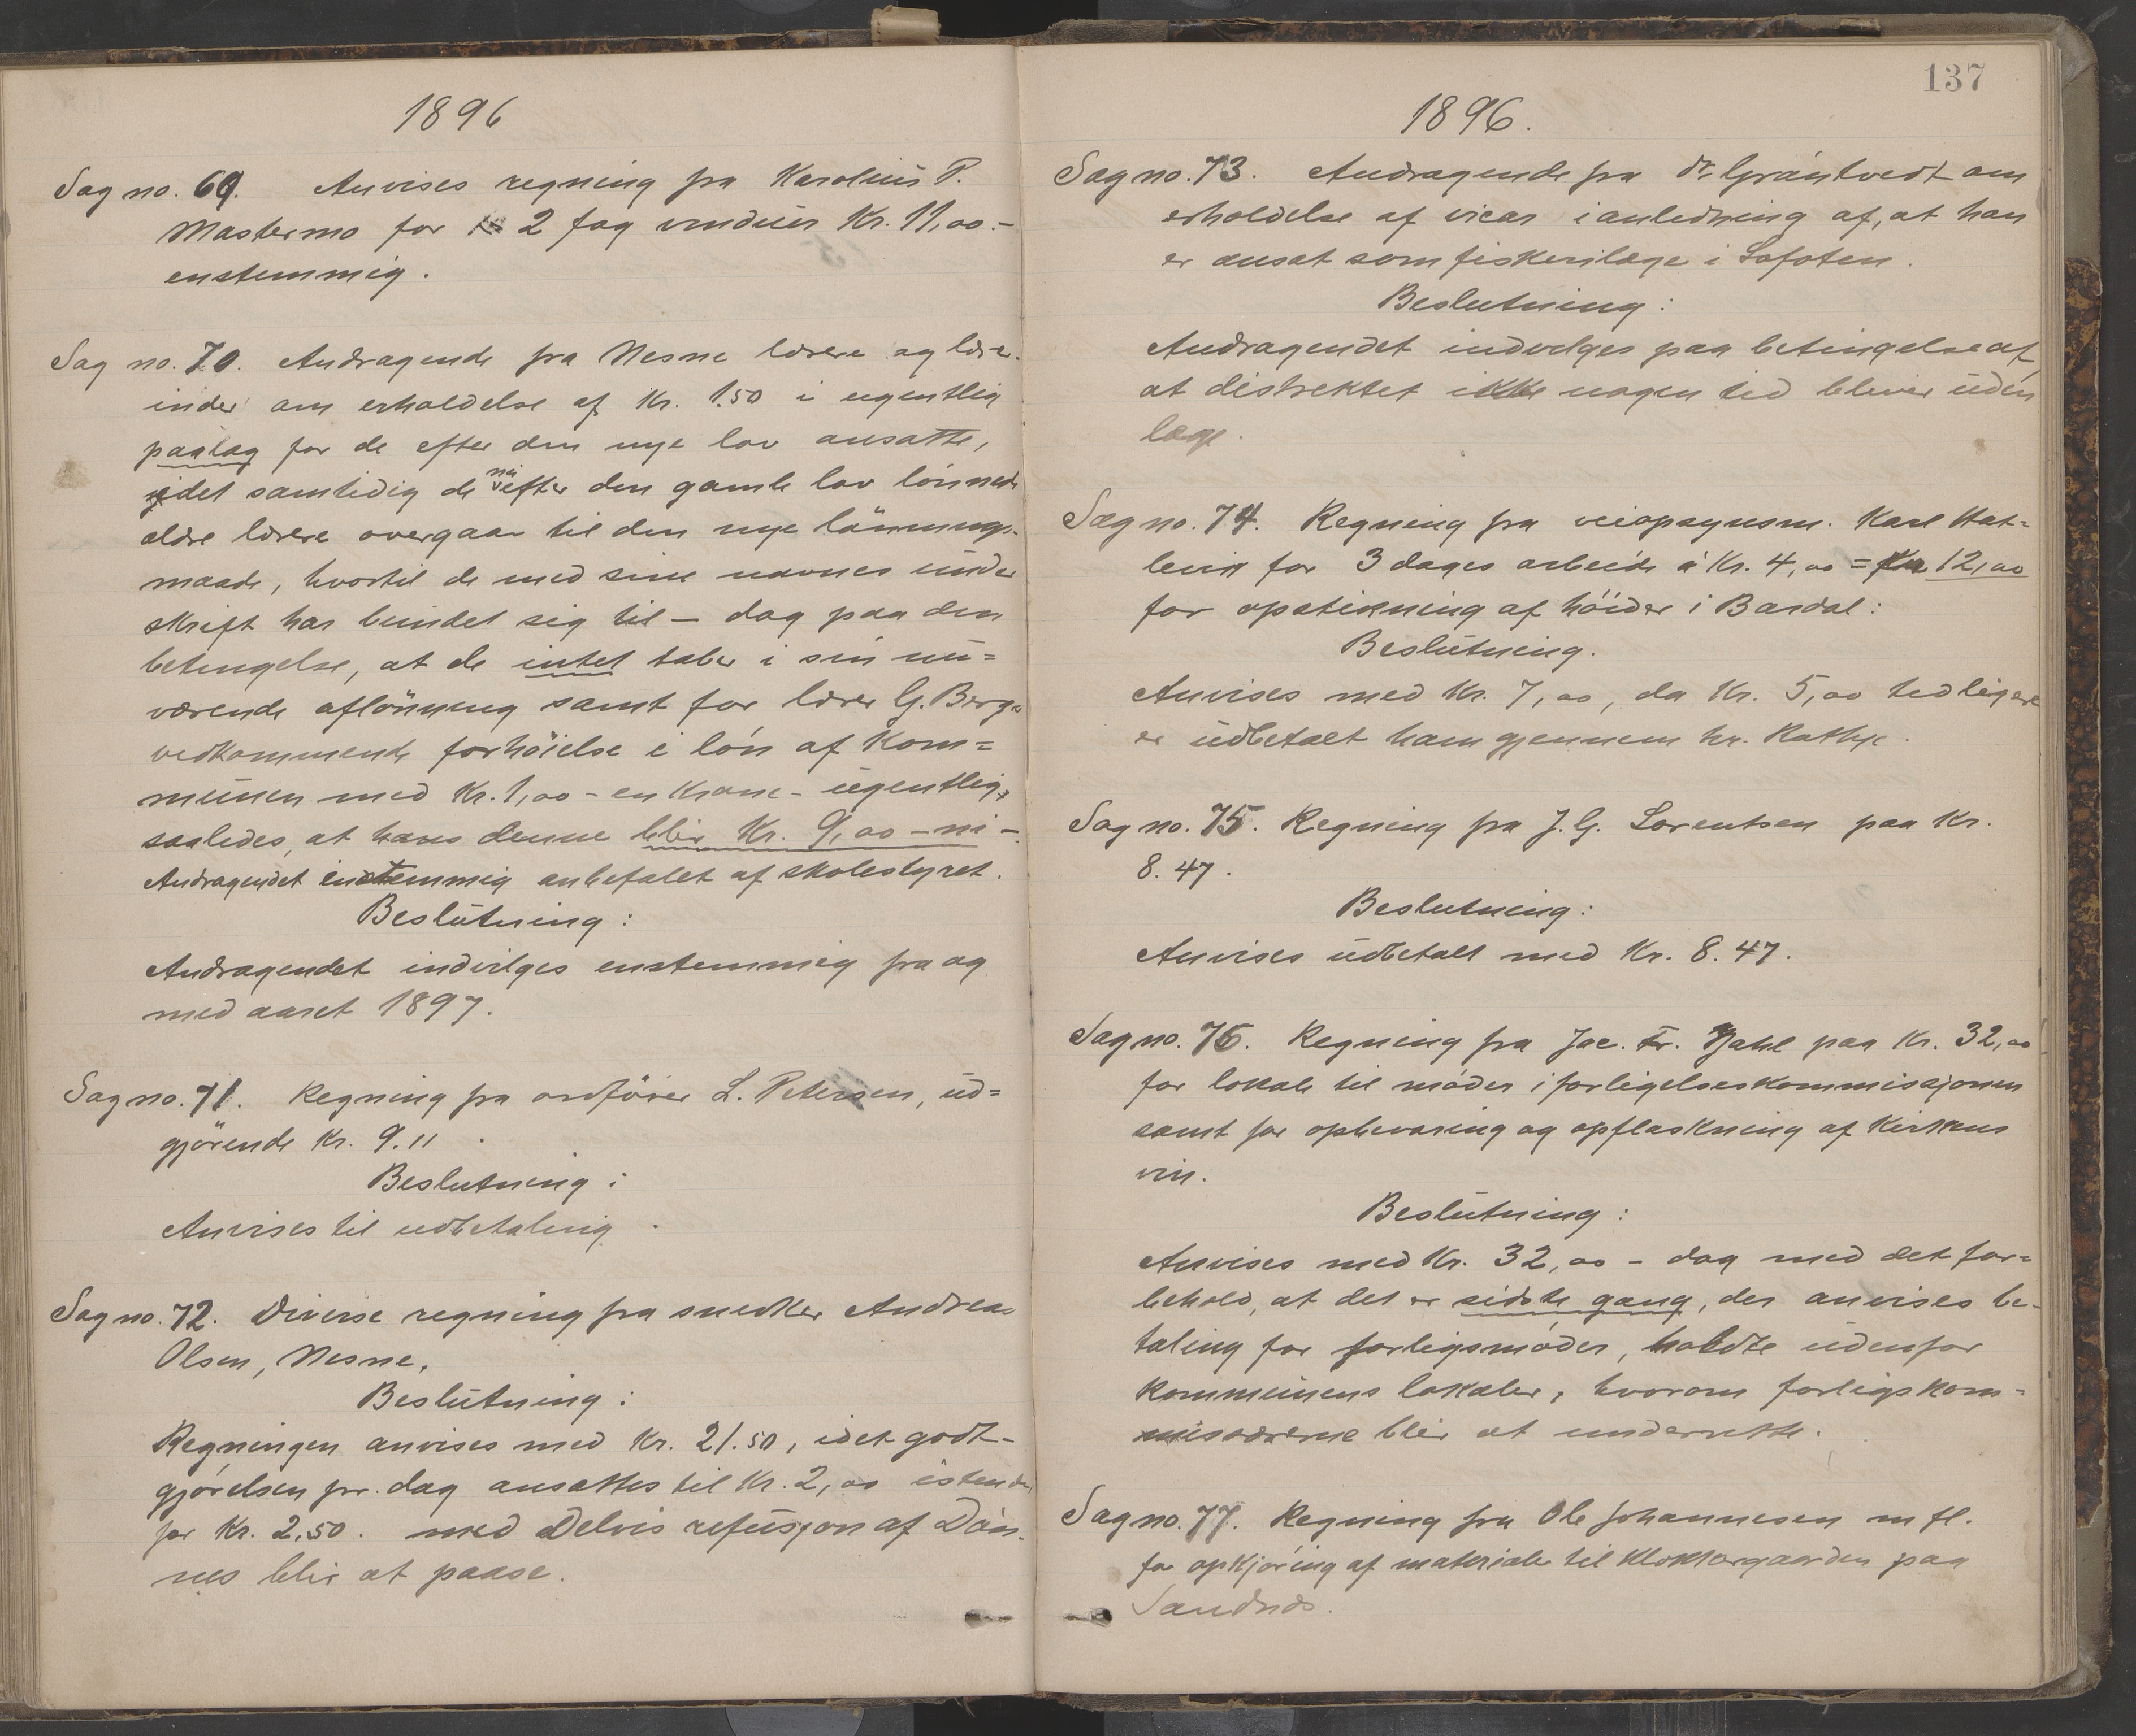 1896
Sag no. 69. Anvises regning fra Karolius P.
Mastermo for 2 fag vinduer Kr. 11,00.-
enstemmig.
Sag no. 70. Andragende fra Nesne lærere og lære-
inder om erholdelse af Kr. 1.50 i ugentlig
paalag for de efter den nye lov ansatte,
idet samtidig de nu efter den gamle lov lönnede
ældre lærere overgaar til den nye lönnings-
maade, hvortil de med sine navnes under
skrift har bundet sig til - dog paa den
betingelse, at de intet taber i sin nu=
værende aflönning samt for lærer G. Bergs
vedkommende forhöielse i lön af Kom=
munen med Kr. 1,00 - en Krone - ugentlig,
saaledes, at hans denne blir Kr. 9,00 - ni -.
Andragendet enstemmig anbefalet af skolestyret.
Beslutning:
Andragendet indvilges enstemmig fra og
med aaret 1897.
Sag no. 71. Regning fra ordförer L. Petersen, ud=
gjörende Kr. 9.11.
Beslutning:
Anvises til udbetaling.
Sag no. 72. Diverse regning fra snedker Andreas
Olsen, Nesne.
Beslutning:
Regningen anvises med Kr. 21.50, idet godt-
gjörelsen pr. dag ansættes til Kr. 2,00 istenden
for Kr. 2,50. med Delvis refusjon af Dön-
nes blir at paase.
137
1896.
Sag no. 73. Andragende fra dr. Gräntvedt om
erholdelse af vicar i anledning af, at han
er ansat som fiskerilæge i Lofoten.
Beslutning:
Andragendet indvilges paa betingelse af,
at distriktet ikke nogen tid bliver uden
læge.
Sag no. 74. Regning fra veiopsynsm. Karl Hat=
levik for 3 dages arbeide á Kr. 4,00 = Kr. 12,00
for opstikning af höider i Bardal:
Beslutning.
Anvises med Kr. 7,00, da Kr. 5,00 tidligere
er udbetalt ham gjennem hr. Rathje.
Sag no. 75. Regning fra J. G. Lorentsen paa Kr.
8.47.
Beslutning:
Anvises udbetalt med Kr. 8.47.
Sag no. 76. Regning fra Jac. Fr. Zahl paa Kr. 32,00
for lokale til möder i forligelseskommissjonen
samt for opbevaring og opflaskning af Kirkens
vin.
Beslutning:
Anvises med Kr. 32,00 - dog med det for=
behold, at det er sidste gang, der anvises be-
taling for forligsmöder, holdte udenfor
Kommunens lokaler, hvorom forligskom=
misærerne blir at underrette.
Sag no. 77. Regning fra Ole Johannesen m fl.
for opkjöring af materialer til Klokkergaarden paa
Sandnes.